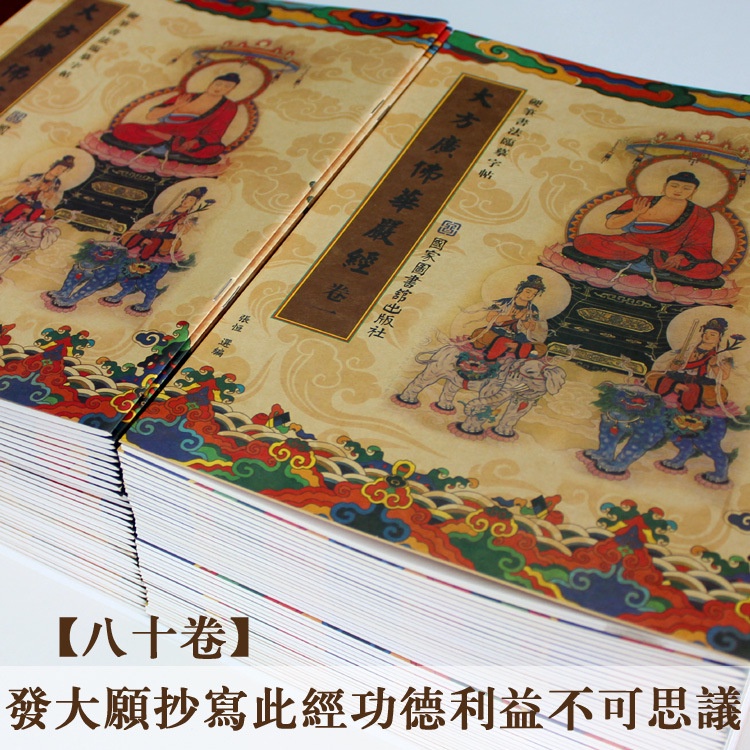 大方廣佛
硬筆書法臨摹字帖
大方廣佛華嚴經 卷一
硬筆書法臨摹字帖
國家圖書館出版社
張恒 選編
【八十卷】
發大願抄寫此經功德利益不可思議